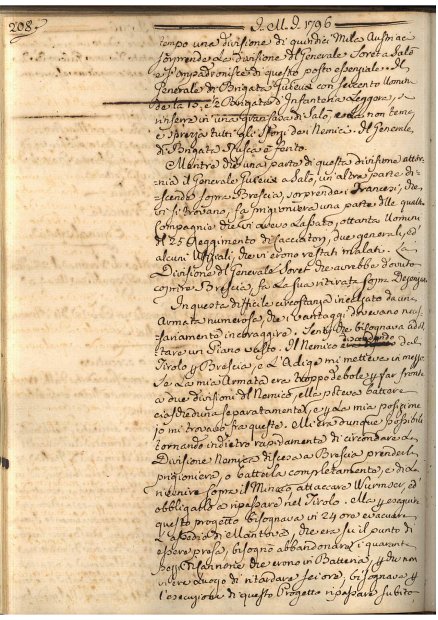 208.
I. M. I. 1796
tempo una divisione di quindici Mila Austriaci
sorprende La divisione del Generale Soret a Salò
e s'impadronisce di questo posto essenziale. Il
Generale di Brigata Guieux con seicento Uomini
de la 15.e Brigata d'Infanteria Leggera, si
rinserra in una gran casa di Salò, e La non teme
e sprezza tutti gli sforzi del Nemico. Il Generale
di Brigata Rusca è ferito.
Mentre che una parte di questa divisione attor-
nia il Generale Guieux a Salò, un'altra parte di-
scende sopra Brescia, sorprende i Francesi, che
vi si trovano, fa prigioniera una parte delle quattro
Compagnie che vi aveva Lasciato, ottanta Uomini
del 25 Reggimento di Cacciatori, due generali, ed
alcuni Uffiziali, che vi erano restati malati. La
Divisione del Generale Soret che avrebbe dovuto
coprire Brescia, fa La sua ritirata sopra Desenzano
In questa difficile circostanza incalzato da una
Armata numerosa, che i vantaggi dovevano neces-
sariamente incoraggire. Sentij che bisognava adot-
tare un Piano vasto. Il Nemico discendendo dal
Tirolo per Brescia, e L'Adige mi metteva in mezzo.
Se La mia Armata era troppo debole per far fronte
a due divisioni del Nemico, ella poteva battere
ciascheduna separatamente, e per La mia posizione
io mi trovavo fra queste. Mi era dunque possibile
tornando indietro rapidamente di circondare La
Divisione Nemica discesa a Brescia prenderla
prigioniera, o batterla completamente, e di là
rivenire sopra il Mincio attaccare Wurmser, ed
obbligarlo a ripassare nel Tirolo. Ma per eseguire
questo progetto bisognava in 24 ore evacuare
L'assedio di Mantova, che era su il punto di
essere presa, bisognò abbandonare i quaranta
pezzi di Cannone che erono in Batteria, per che non
vi era Luogo di ritardare sei ore, bisognava per
l'esecuzione di questo Progetto ripassare subito